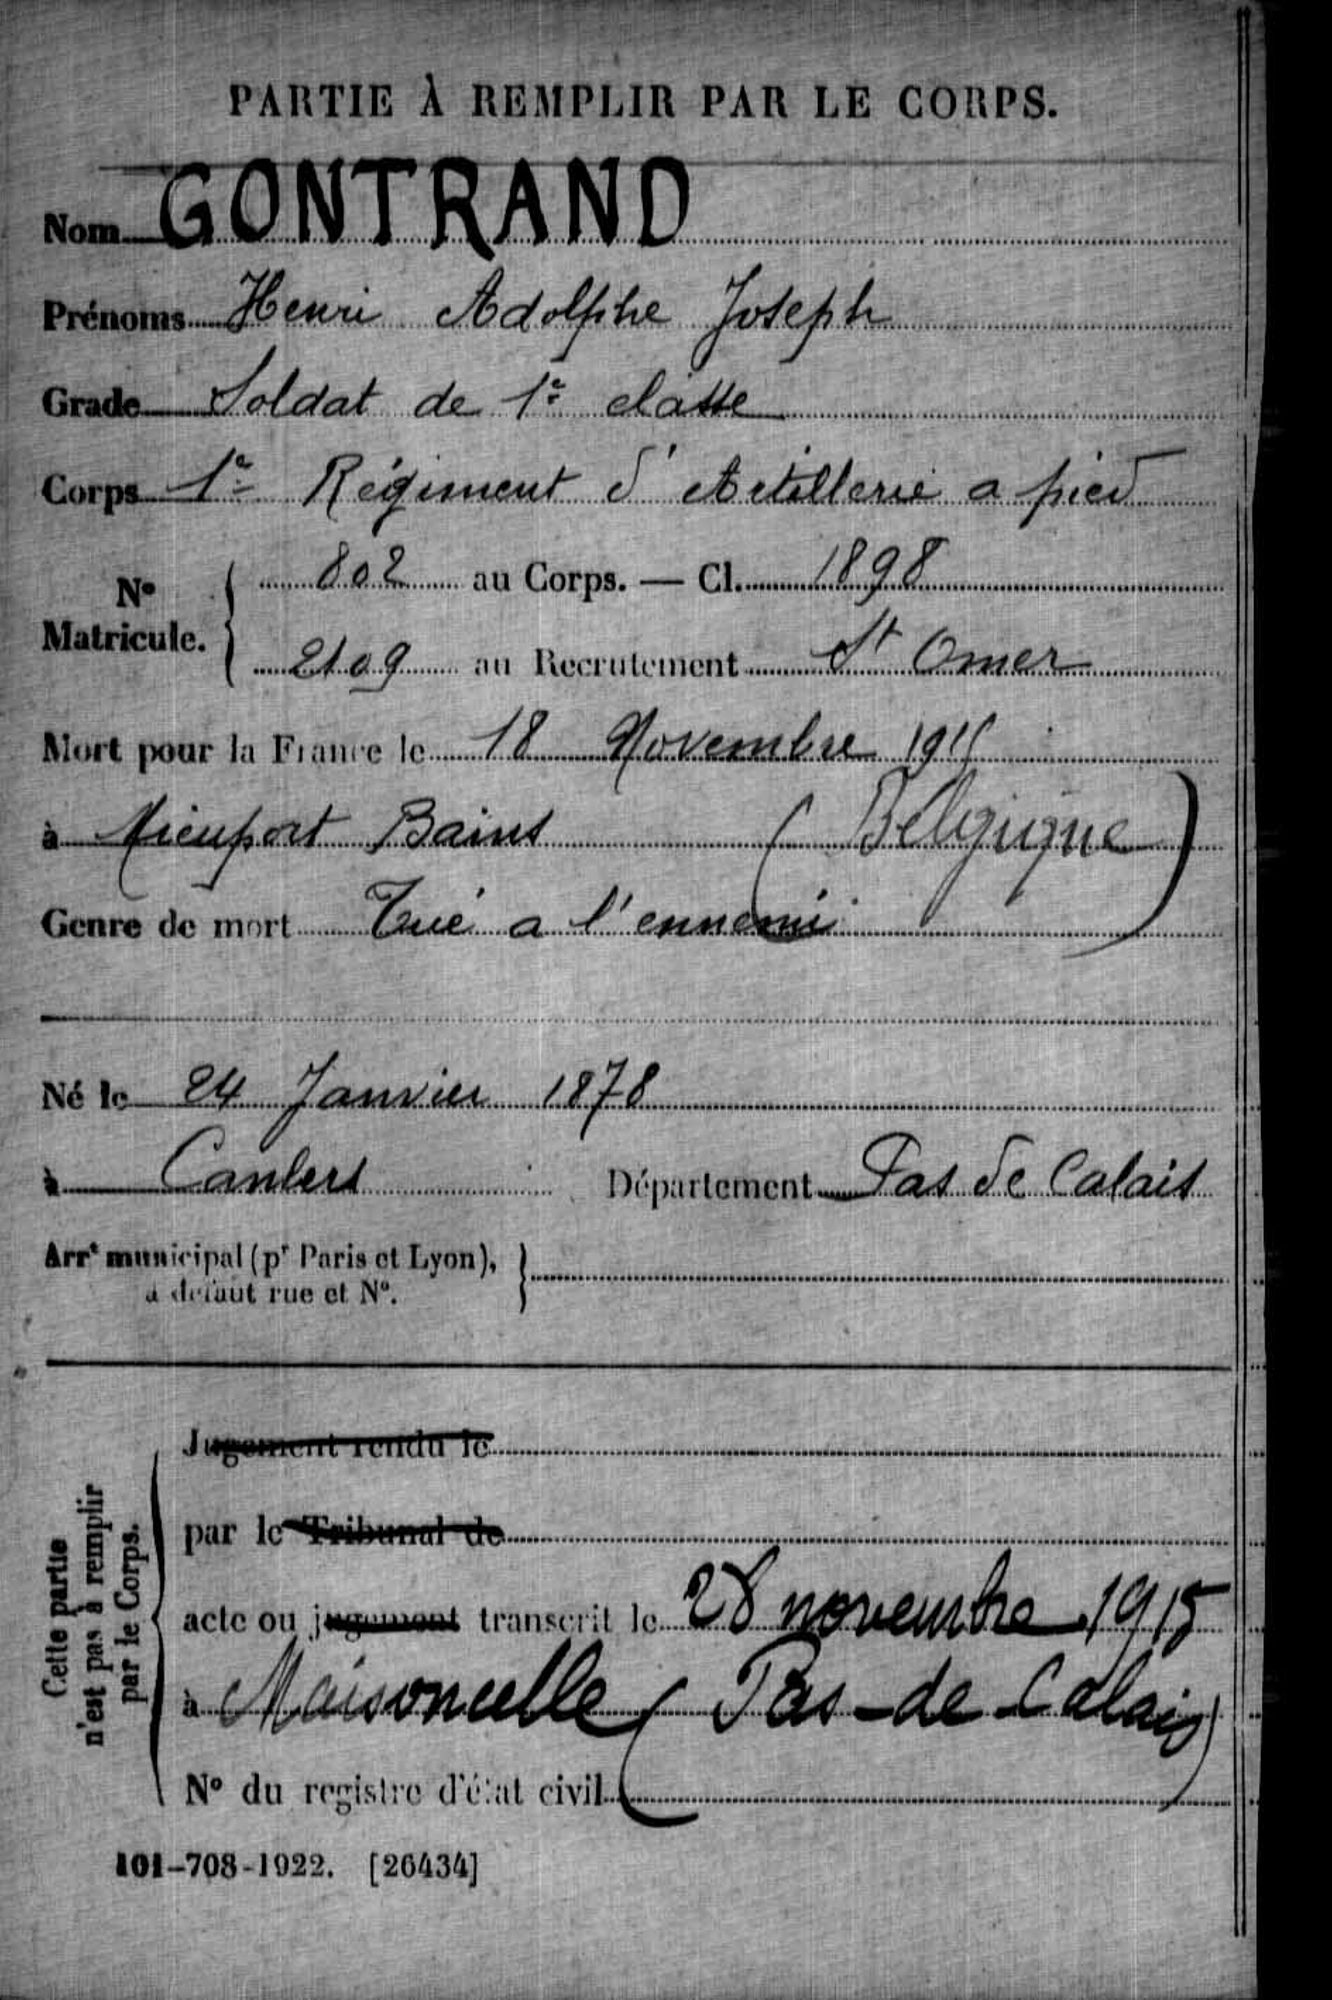 PARTIE À REMPLIR PAR LE CORPS.
Nom GONTRAND
Prénoms Henri Adolphe Joseph
Grade Soldat de 1e classe
Corps 1e Régiment d'Artillerie a pied
No Matricule. { 802 au Corps. — Cl. 1898
2109 au Recrutement St Omer
Mort pour la France le 18 Novembre 1915
à Nieuport Bains (Belgique)
Genre de mort Tué a l'ennemi
Né le 24 Janvier 1878
à Canlers Département Pas de Calais
Arrt municipal (pr Paris et Lyon), }
à défaut rue et No.
Cette partie
n'est pas à remplir
par le Corps.
Jugement rendu le
par le Tribunal de
acte ou jugement transcrit le 28 novembre 1915
à Maisoncelle (Pas-de-Calais)
No du registre d'état civil
101-708-1922. [26434]